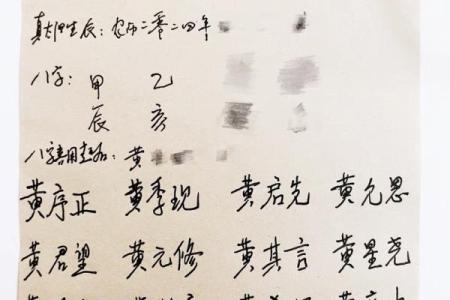 真太阳生辰：农历二零二四年
八字：甲 乙
辰 亥
八字喜用起名：黄
黄序正 黄季现 黄启先 黄允恩
黄君望 黄元修 黄其言 黄星尧